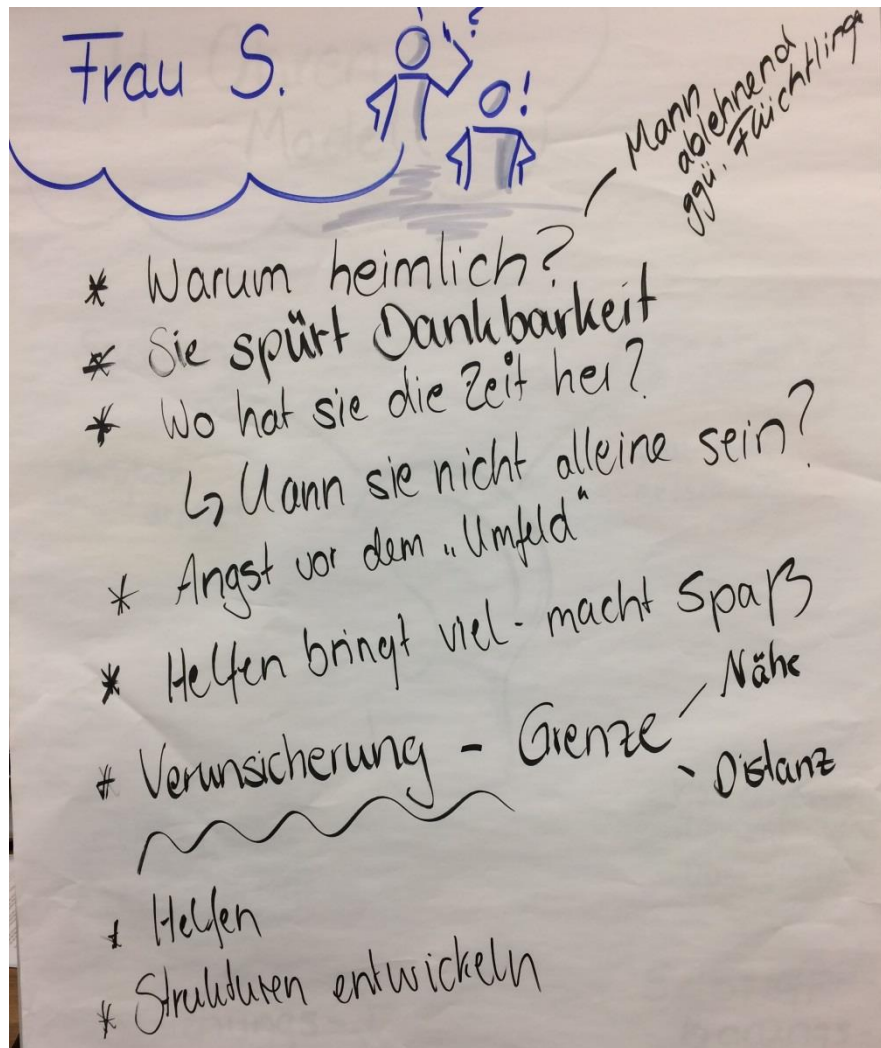 Frau S.
?
!
Mann
ablehnend
ggü. Flüchtlinge
* Warum heimlich?
* Sie spürt Dankbarkeit
* Wo hat sie die Zeit her?
↳ Kann sie nicht alleine sein?
* Angst vor dem „Umfeld“
* Helfen bringt viel - macht Spaß
* Verunsicherung - Grenze
Nähe
Distanz
* Helfen
* Strukturen entwickeln